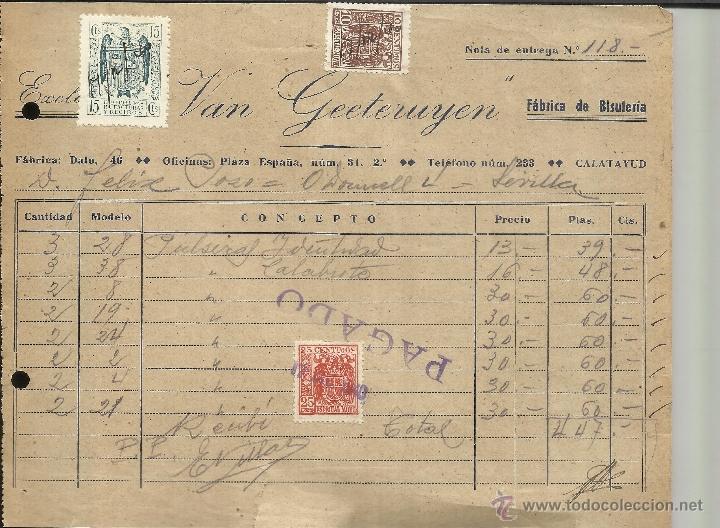 Nota de entrega N.º 118.-
"Van Geeteruyen"
Fábrica de Bisutería
Fábrica: Dato, 46 ◆◆ Oficinas: Plaza España, núm. 31, 2.º ◆◆ Teléfono núm. 233 ◆◆ CALATAYUD
D. Felix Pozo = O'Donnell = Sevilla
Cantidad Modelo CONCEPTO Precio Ptas. Cts.
3 28 Pulseras Identidad 13.- 39.-
3 38 " Calabrote 16.- 48.-
2 8 " 30.- 60.-
2 19 " 30.- 60.-
2 24 " 30.- 60.-
2 2 " 30.- 60.-
2 4 " 30.- 60.-
2 21 " 30.- 60.-
Total 447.-
Recibí
P.P.
PAGADO
15 Cts 15
15 Cts
25 CENTIMOS
ESPECIAL MOVIL
todocoleccion.net